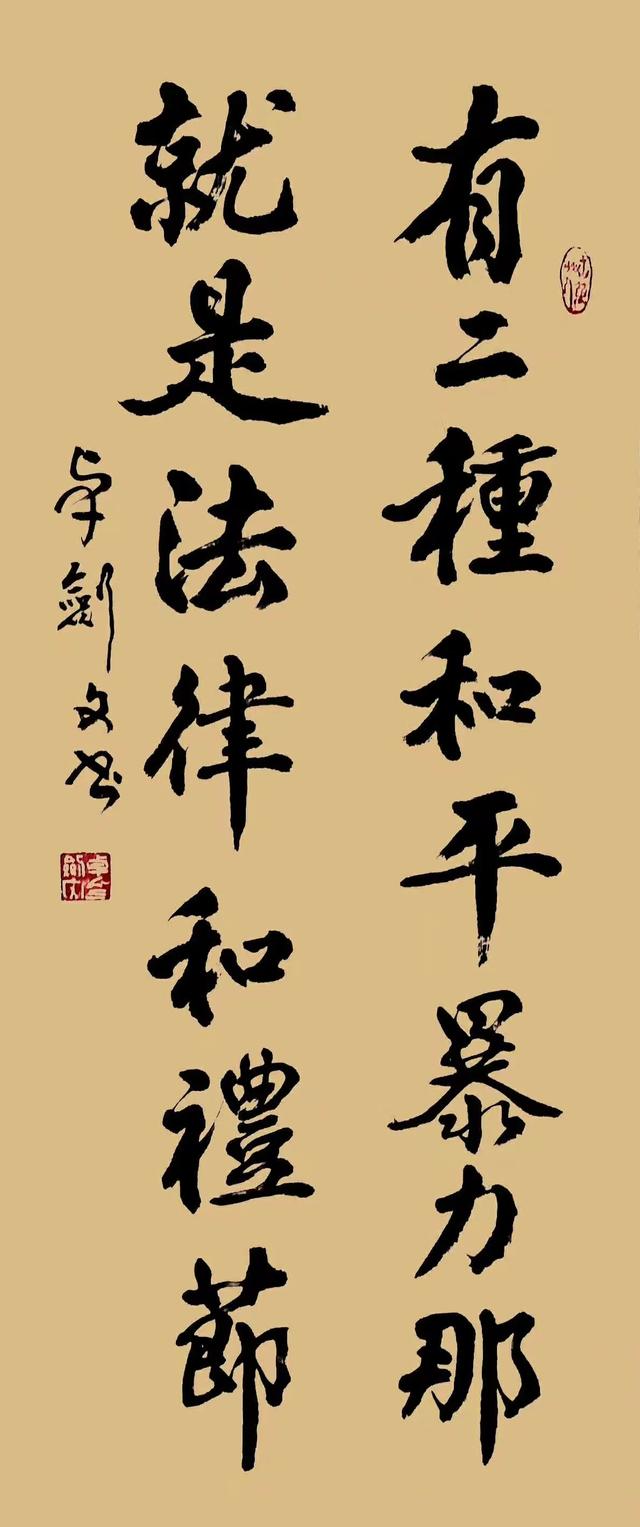 有二種和平暴力那
就是法律和禮節
卓劍文书